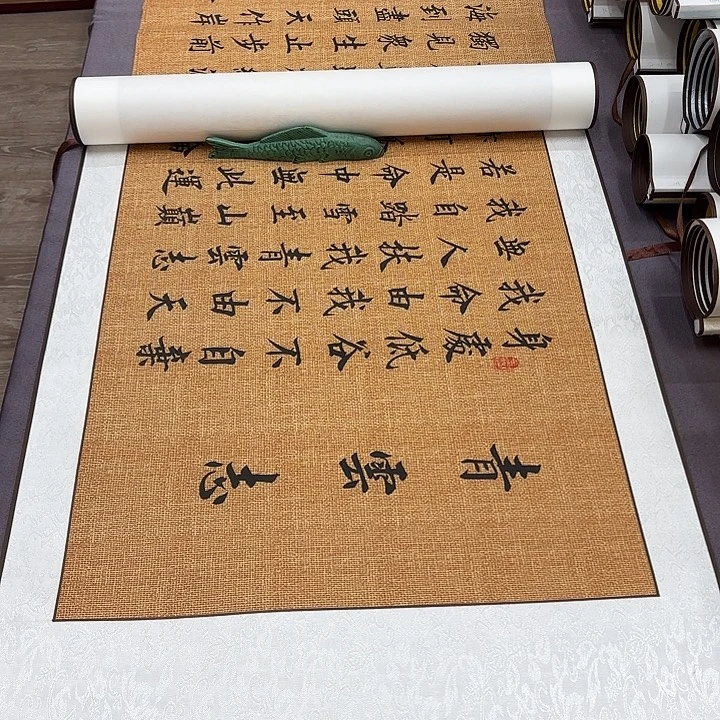 青雲志
身處低谷不自棄
我命由我不由天
無人扶我青雲志
我自踏雪至山巔
若是命中無此運
獨見衆生止步前
海到盡頭天作岸